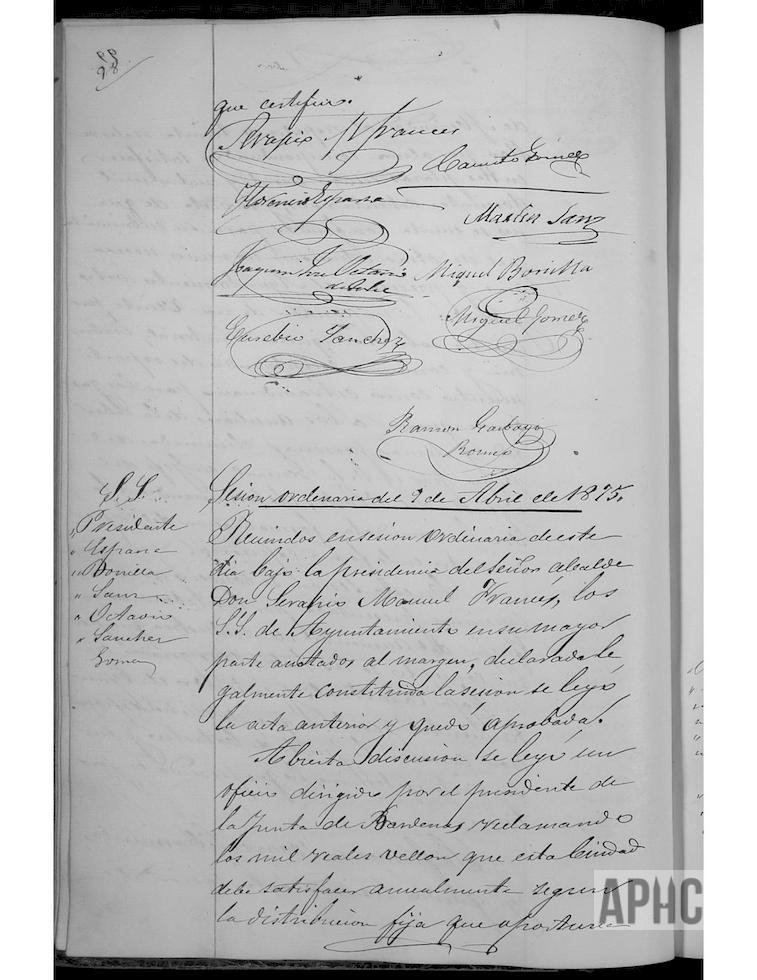 que certifico.
Serapio M. Frances
Camilo Gomez
Florencio España
Martin Sanz
Joaquin Octavio
de Toledo
Miguel Bonilla
Miguel Gomez
Eusebio Sanchez
Ramon Garbayo
Romeo
Sesion ordenaria del 9 de Abril de 1875.
S.S.
" Presidente
" España
" Bonilla
" Sanz
" Octavio
" Sanchez
Gomez
Reunidos en sesion ordinaria de este
dia bajo la presidencia del Señor alcalde
Don Serapio Manuel Frances, los
S.S. de Ayuntamiento en su mayor
parte anotados al margen, declarada le
galmente constituida la sesion se leyó
la acta anterior y quedó aprobada.
Abierta discusion se leyo un
oficio dirigido por el presidente de
la Junta de Bardenas reclamando
los mil reales vellon que esta Ciudad
debe satisfacer anualmente segun
la distribucion fija que
APHC